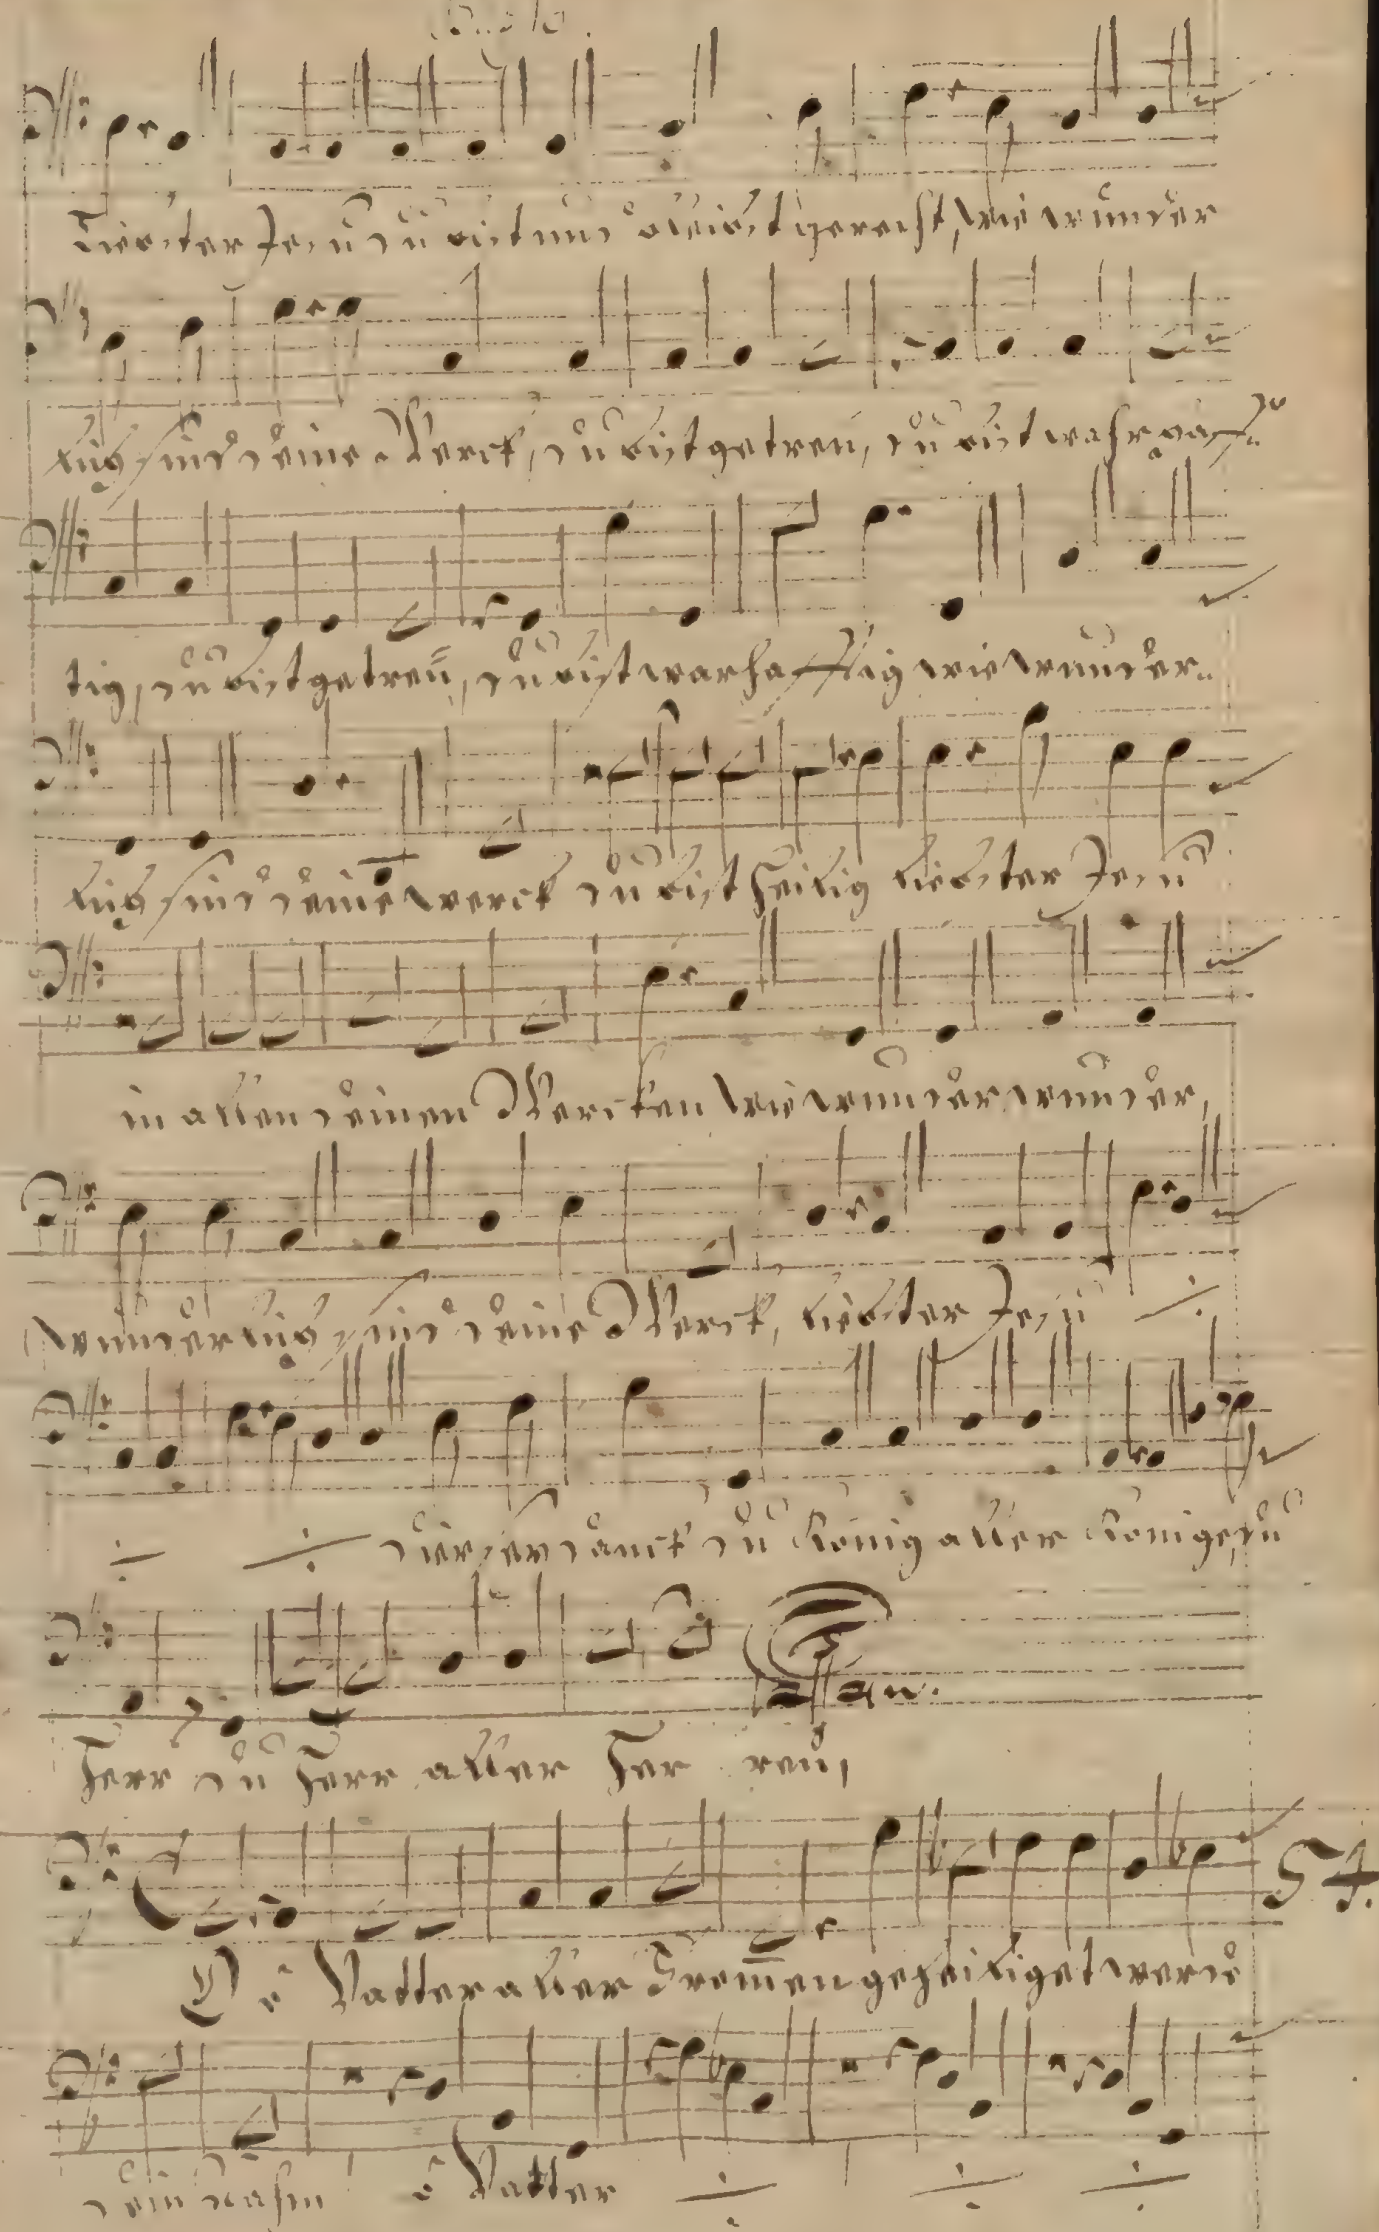 Liebster Jesu du bist und bleibst gerecht, wie wunder
lich sind deine Werck, du bist getreu, du bist warhaff-
tig, du bist getreu, du bist warhafftig wie wunder-
lich sind deine werck du bist heilig liebster Jesu
in allen deinen Wercken wie wunder wunder,
wunderlich sind deine Werck, liebster Jesu ./.
./. ./. dier sey danck du König aller Könige, du
Herr du Herr aller Her ren,
54.
O Vatter aller Fromen geheiliget werde
dein Nahm o Vatter ./. ./. ./.